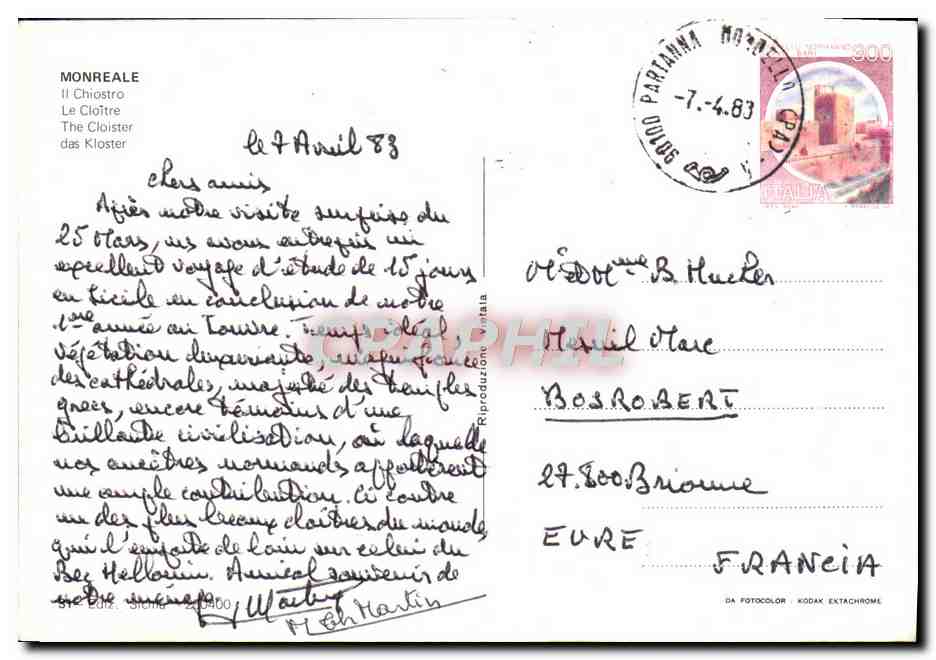 MONREALE
Il Chiostro
Le Cloître
The Cloister
das Kloster
le 7 Avril 83
Chers amis
Après notre visite surprise du
25 Mars, ns avons entrepris un
excellent voyage d'étude de 15 jours
en Sicile en conclusion de notre
1ère année au Louvre. Temps idéal,
végétation luxuriante, magnificence
des cathédrales, majesté des temples
grecs, encore témoins d'une
brillante civilisation, à laquelle
nos ancêtres normands apportèrent
une ample contribution. Ci contre
un des plus beaux cloîtres du monde,
qui l'emporte de loin sur celui du
Bec Hellouin. Amical souvenir de
notre ménage.
M Ch Martin
Ediz. Sicilia 200400
Riproduzione vietata
90100 PARTANNA MONDELLO (PA)
-7.-4.83
300
ITALIA
M et Mme B. Mucker
Mesnil Marc
BOSROBERT
27.800 Brionne
EURE
FRANCIA
DA FOTOCOLOR - KODAK EKTACHROME
CPAPHIL